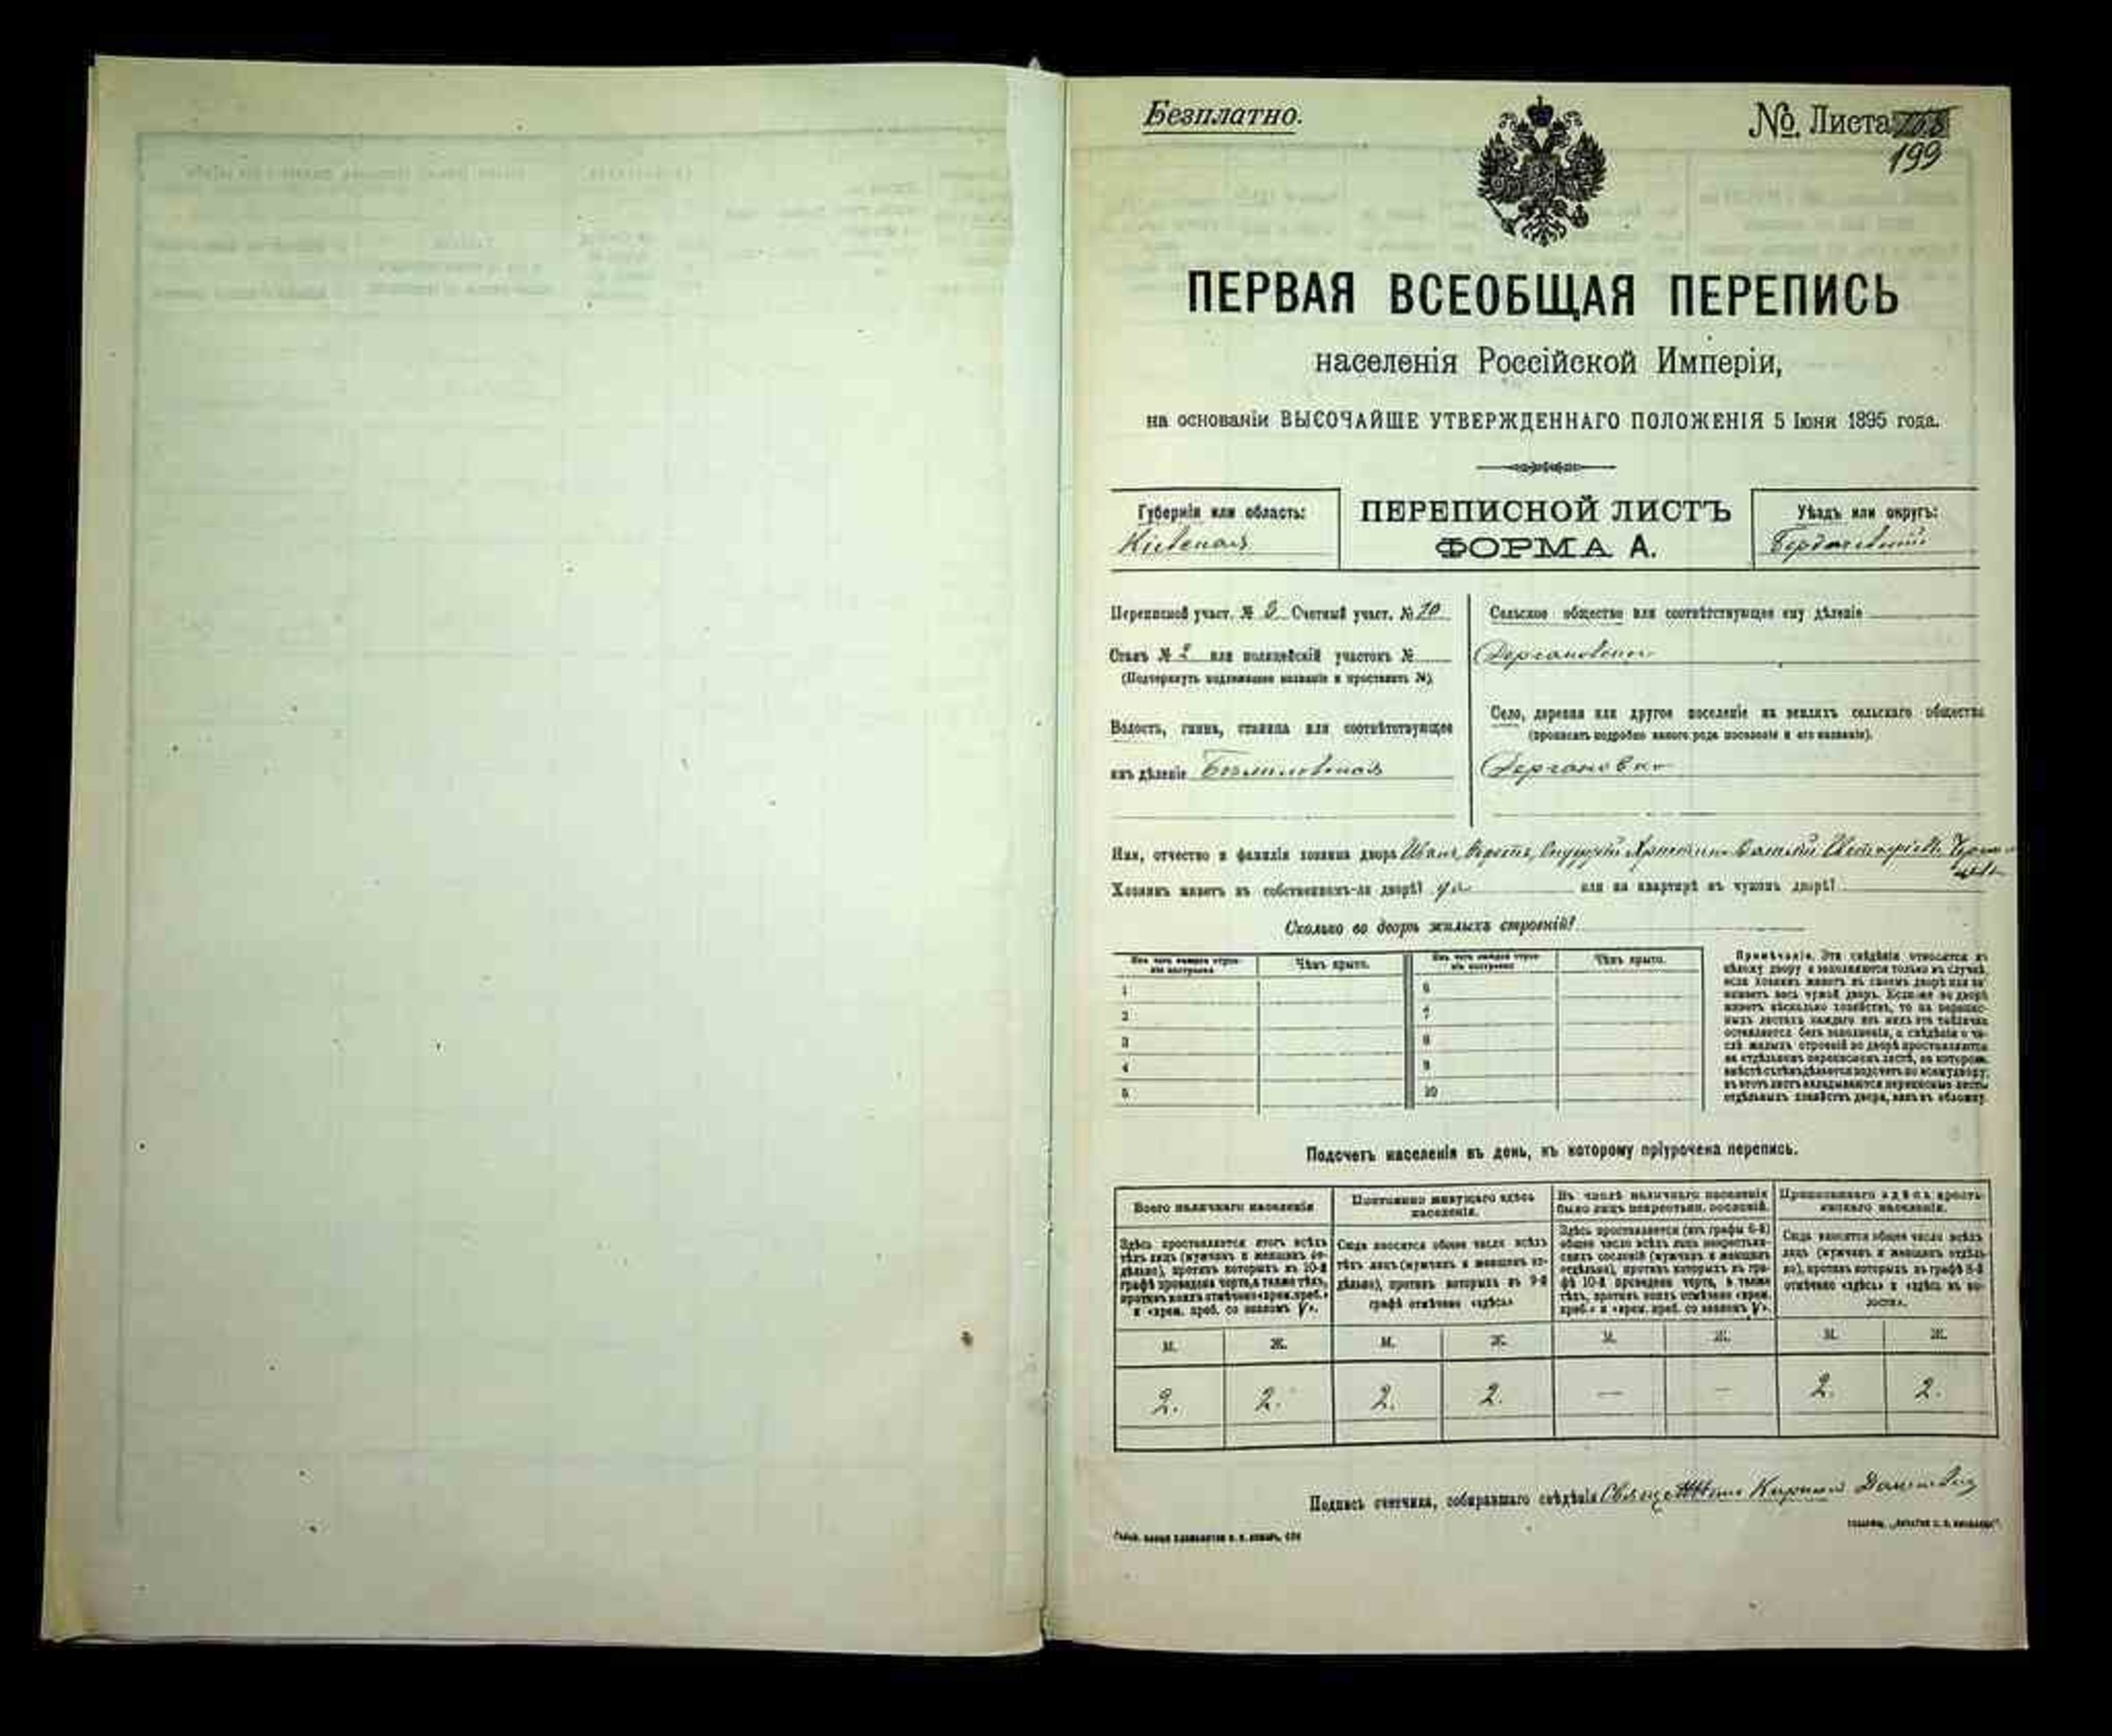 Безплатно.
№. Листа
199
ПЕРВАЯ ВСЕОБЩАЯ ПЕРЕПИСЬ
населенія Россійской Имперіи,
на основаніи ВЫСОЧАЙШЕ УТВЕРЖДЕННАГО ПОЛОЖЕНІЯ 5 Іюня 1895 года.
Губернія или область:
Кіевская
ПЕРЕПИСНОЙ ЛИСТЪ
ФОРМА А.
Уѣздъ или округъ:
Бердичевскій
Переписной участ. № 3 Счетный участ. № 20
Станъ № 2 или полицейскій участокъ №
(Подчеркнуть надлежащее названіе и проставить №)
Волость, гмина, станица или соотвѣтствующее
имъ дѣленіе
Сельское общество или соотвѣтствующее ему дѣленіе
Село, деревня или другое поселеніе на земляхъ сельскаго общества
(прописать подробно какого рода поселеніе и его названіе).
Имя, отчество и фамилія хозяина двора
Хозяинъ живетъ въ собственномъ-ли дворѣ? да или на квартирѣ въ чужомъ дворѣ?
Сколько во дворѣ жилыхъ строеній?
Изъ чего каждое строеніе построено
Чѣмъ крыто.
Изъ чего каждое строеніе построено
Чѣмъ крыто.
1
2
3
4
5
6
7
8
9
10
Примѣчаніе. Эти свѣдѣнія относятся къ
цѣлому двору и заполняются только въ случаѣ,
если хозяинъ живетъ въ своемъ дворѣ или за-
нимаетъ весь чужой дворъ. Если же во дворѣ
живетъ нѣсколько хозяйствъ, то на перепис-
ныхъ листахъ каждаго изъ нихъ эта табличка
оставляется безъ заполненія, а свѣдѣнія о чи-
слѣ жилыхъ строеній во дворѣ проставляются
на отдѣльномъ переписномъ листѣ, на которомъ
вмѣстѣ съ тѣмъ дѣлается подсчетъ по всему двору;
въ этотъ листъ вкладываются переписные листы
отдѣльныхъ хозяйствъ двора, какъ въ обложку.
Подсчетъ населенія въ день, къ которому пріурочена перепись.
Всего наличнаго населенія
Здѣсь проставляется итогъ всѣхъ
тѣхъ лицъ (мужчинъ и женщинъ от-
дѣльно), противъ которыхъ въ 10-й
графѣ проведена черта, а также тѣхъ,
противъ коихъ отмѣчено «врем. преб.»
и «врем. преб. со знакомъ V».
Постоянно живущаго здѣсь
населенія.
Сюда вносится общее число всѣхъ
тѣхъ лицъ (мужчинъ и женщинъ от-
дѣльно), противъ которыхъ въ 9-й
графѣ отмѣчено «здѣсь»
Въ числѣ наличнаго населенія
было лицъ некрестьян. сословій.
Здѣсь проставляется (изъ графы 6-й)
общее число всѣхъ лицъ некрестьян-
скихъ сословій (мужчинъ и женщинъ
отдѣльно), противъ которыхъ въ гра-
фѣ 10-й проведена черта, а также
тѣхъ, противъ коихъ отмѣчено «врем.
преб.» и «врем. преб. со знакомъ V».
Приписаннаго здѣсь кресть-
янскаго населенія.
Сюда вносится общее число всѣхъ
лицъ (мужчинъ и женщинъ отдѣль-
но), противъ которыхъ въ графѣ 8-й
отмѣчено «здѣсь» и «здѣсь въ во-
лости».
М. Ж. М. Ж. М. Ж. М. Ж.
2. 2. 2. 2. — — 2. 2.
Подпись счетчика, собиравшаго свѣдѣнія